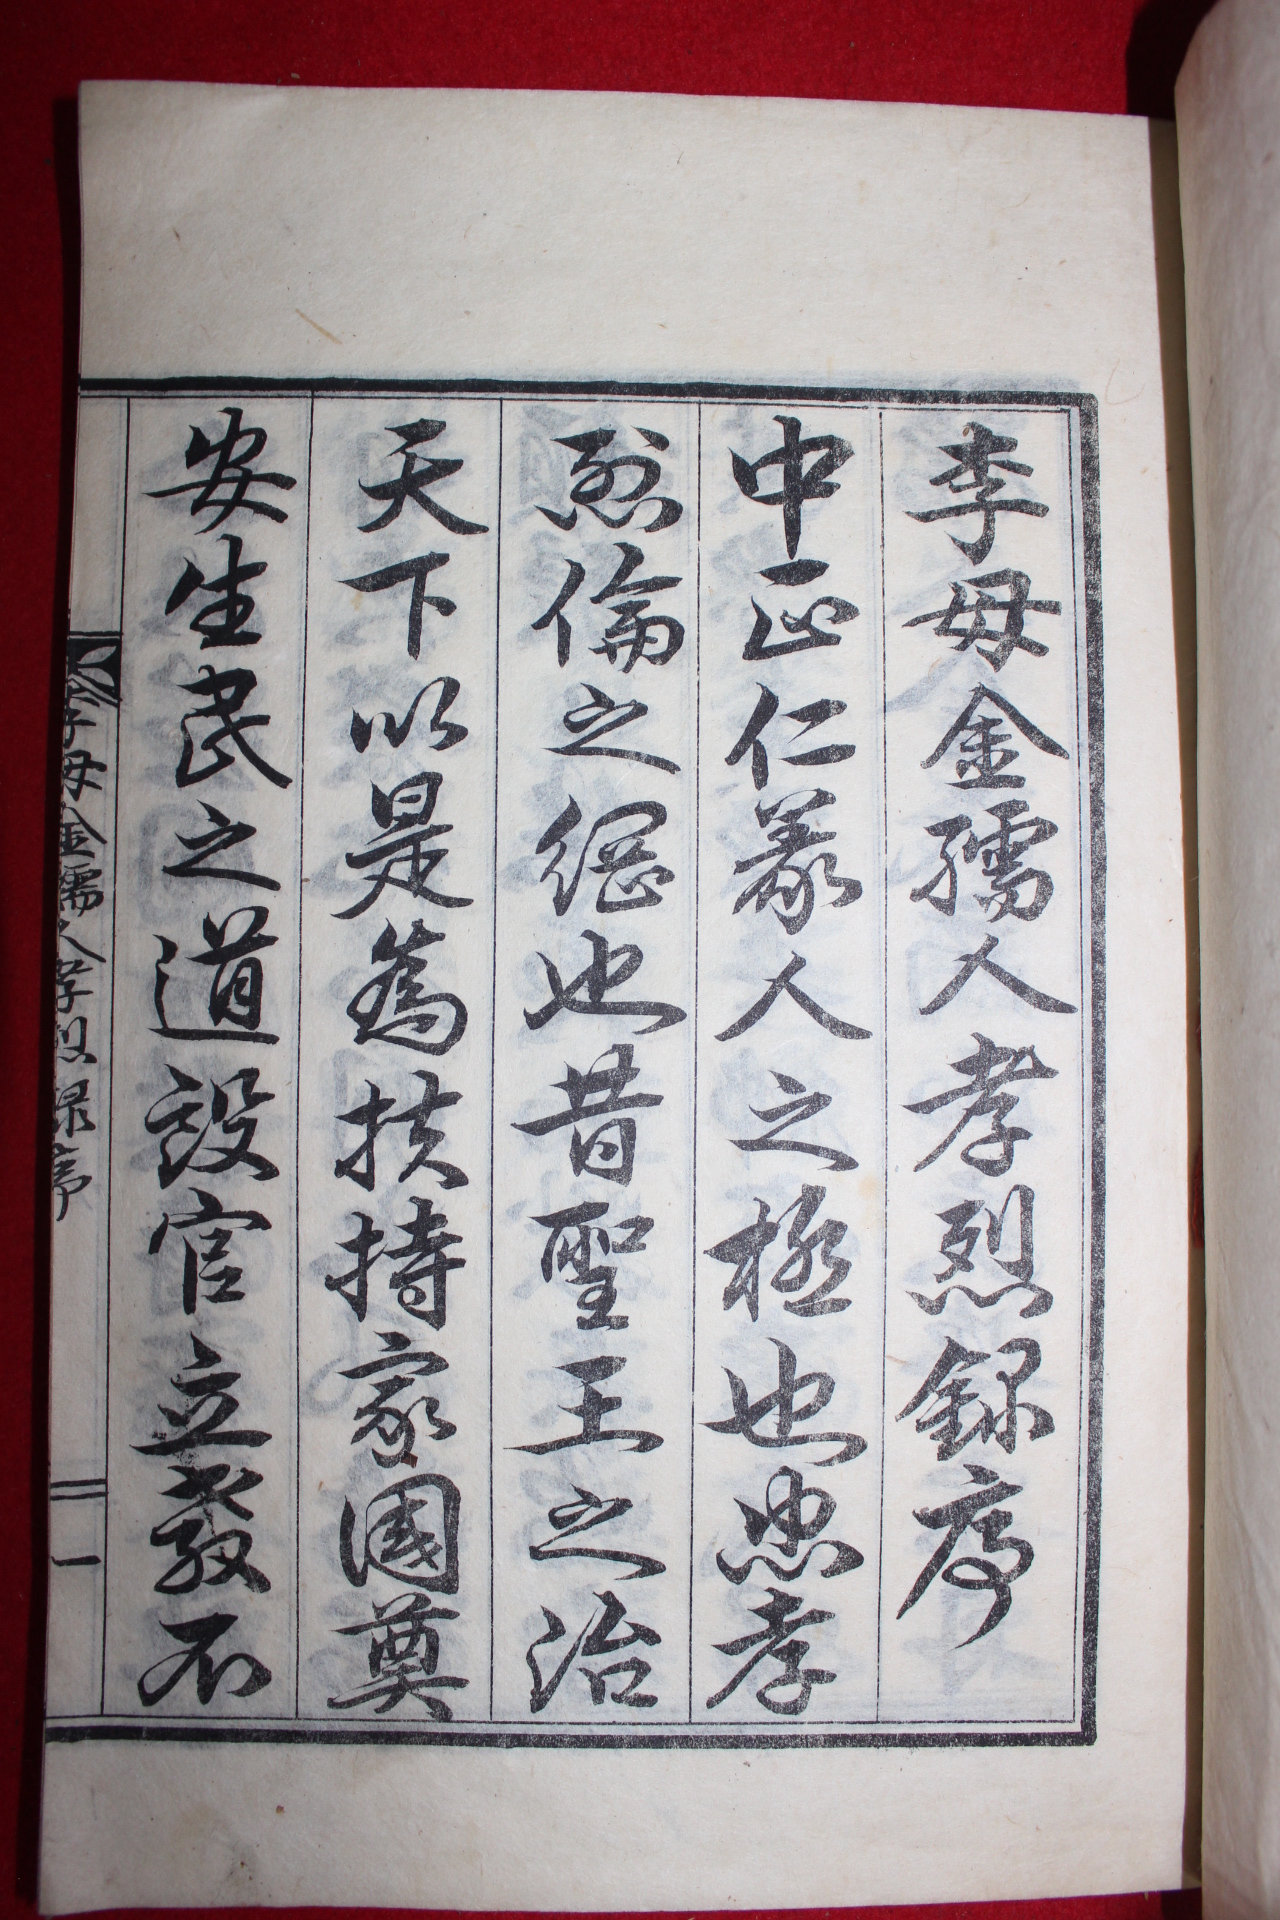 李母金孺人孝烈錄序
中正仁義人人之極也忠孝
烈倫之綱也昔聖王之治
天下以是為扶持家國奠
安生民之道設官立教不
李母金孺人孝烈錄序
一